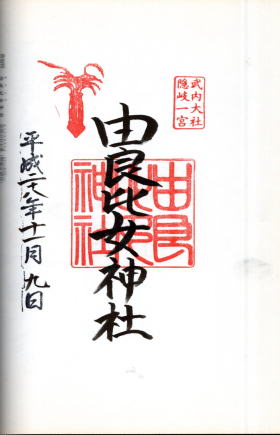 式内大社
隠岐一宮
由良比女神社
由良
神社
平成二十八年十一月九日